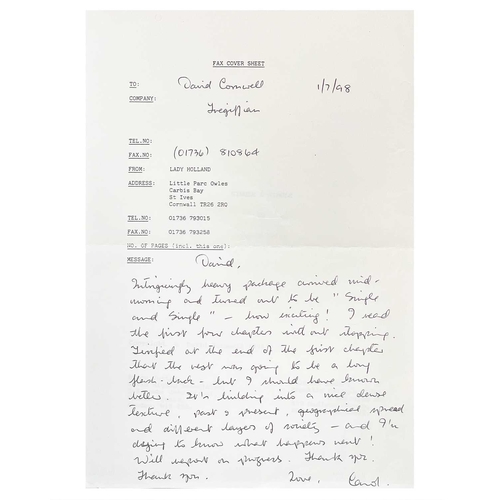 FAX COVER SHEET
TO: David Cornwell 1/7/98
COMPANY: Tregiffian
TEL.NO:
FAX.NO: (01736) 810864
FROM: LADY HOLLAND
ADDRESS: Little Parc Owles
Carbis Bay
St Ives
Cornwall TR26 2RQ
TEL.NO: 01736 793015
FAX.NO: 01736 793258
NO. OF PAGES (incl. this one):
MESSAGE: David,
Intriguingly heavy package arrived mid-
morning and turned out to be "Single
and Single" - how exciting! I read
the first four chapters without stopping.
Terrified at the end of the first chapter
that the rest was going to be a long
flash-back - but I should have known
better. It's building into a nice dense
texture, past & present, geographical spread
and different layers of society - and I'm
dying to know what happens next!
Will report on progress. Thank you.
Thank you. Love, Carol.